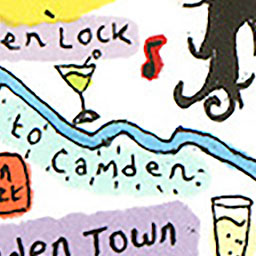 en Lock
to Camden
den Town